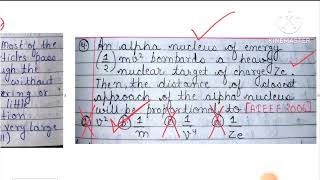 Most of the
icles pass
gh the
without
ering or
little
tion.
very large
KINEMASTER
④ An alpha nucleus of energy
(1/2) mv² bombards a heavy
nuclear target of charge Ze.
Then the distance of closest
approach of the alpha nucleus
will be proportional to [AIEEE 2006]
v² 1/m 1/v⁴ 1/Ze